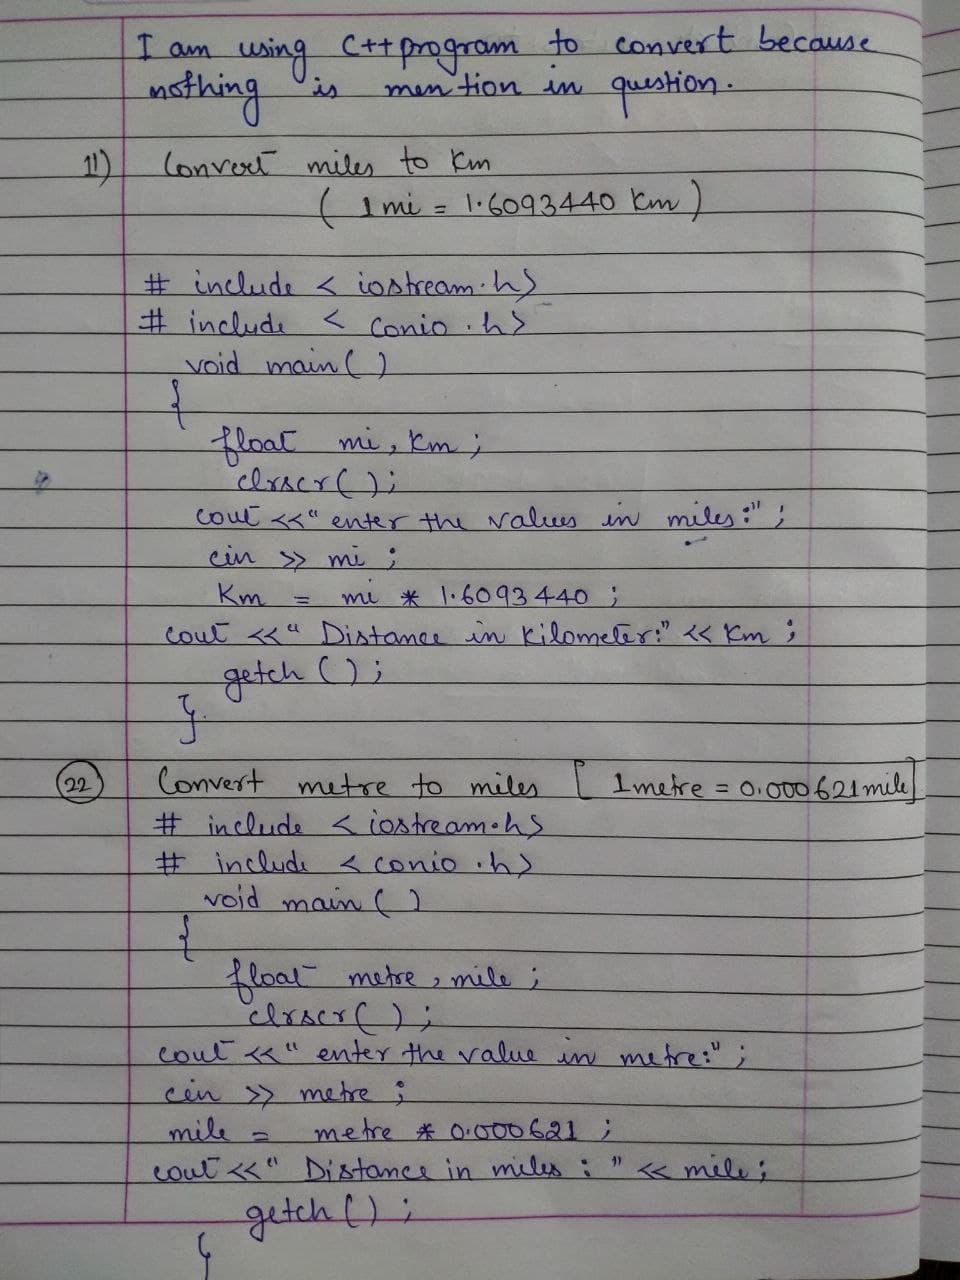 I am using C++ program to convert because
nothing is mention in question.
11) Convert miles to Km
( 1 mi = 1.6093440 Km )
# include < iostream.h>
# include < conio.h>
void main ( )
{
float mi, Km ;
clrscr ( );
cout <<" enter the values in miles :" ;
cin >> mi ;
Km = mi * 1.6093440 ;
cout <<" Distance in Kilometer:" << Km ;
getch ( ) ;
}
22 Convert metre to miles [ 1 metre = 0.000621 mile]
# include < iostream.h>
# include < conio.h>
void main ( )
{
float metre, mile ;
clrscr ( ) ;
cout <<" enter the value in metre:" ;
cin >> metre ;
mile = metre * 0.000621 ;
cout <<" Distance in miles : " << mile ;
getch ( ) ;
}